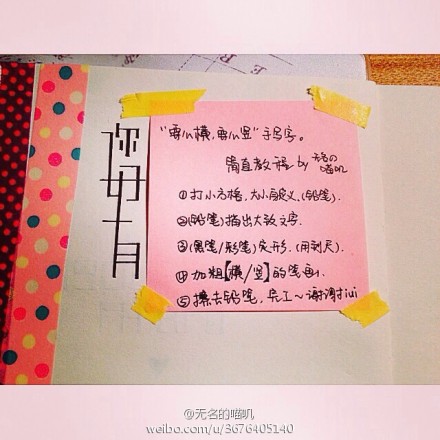 你好十一月
"要么横,要么竖"手写字。
简直教程 by 无名の
喵叽
①打小方格,大小自定义。(铅笔)
②(铅笔)描出大致文字。
③(黑笔/彩笔)定形。(用到尺)
④加粗【横/竖】的笔画。
⑤擦去铅笔,完工~谢谢iui
@无名的喵叽
weibo.com/u/3676405140